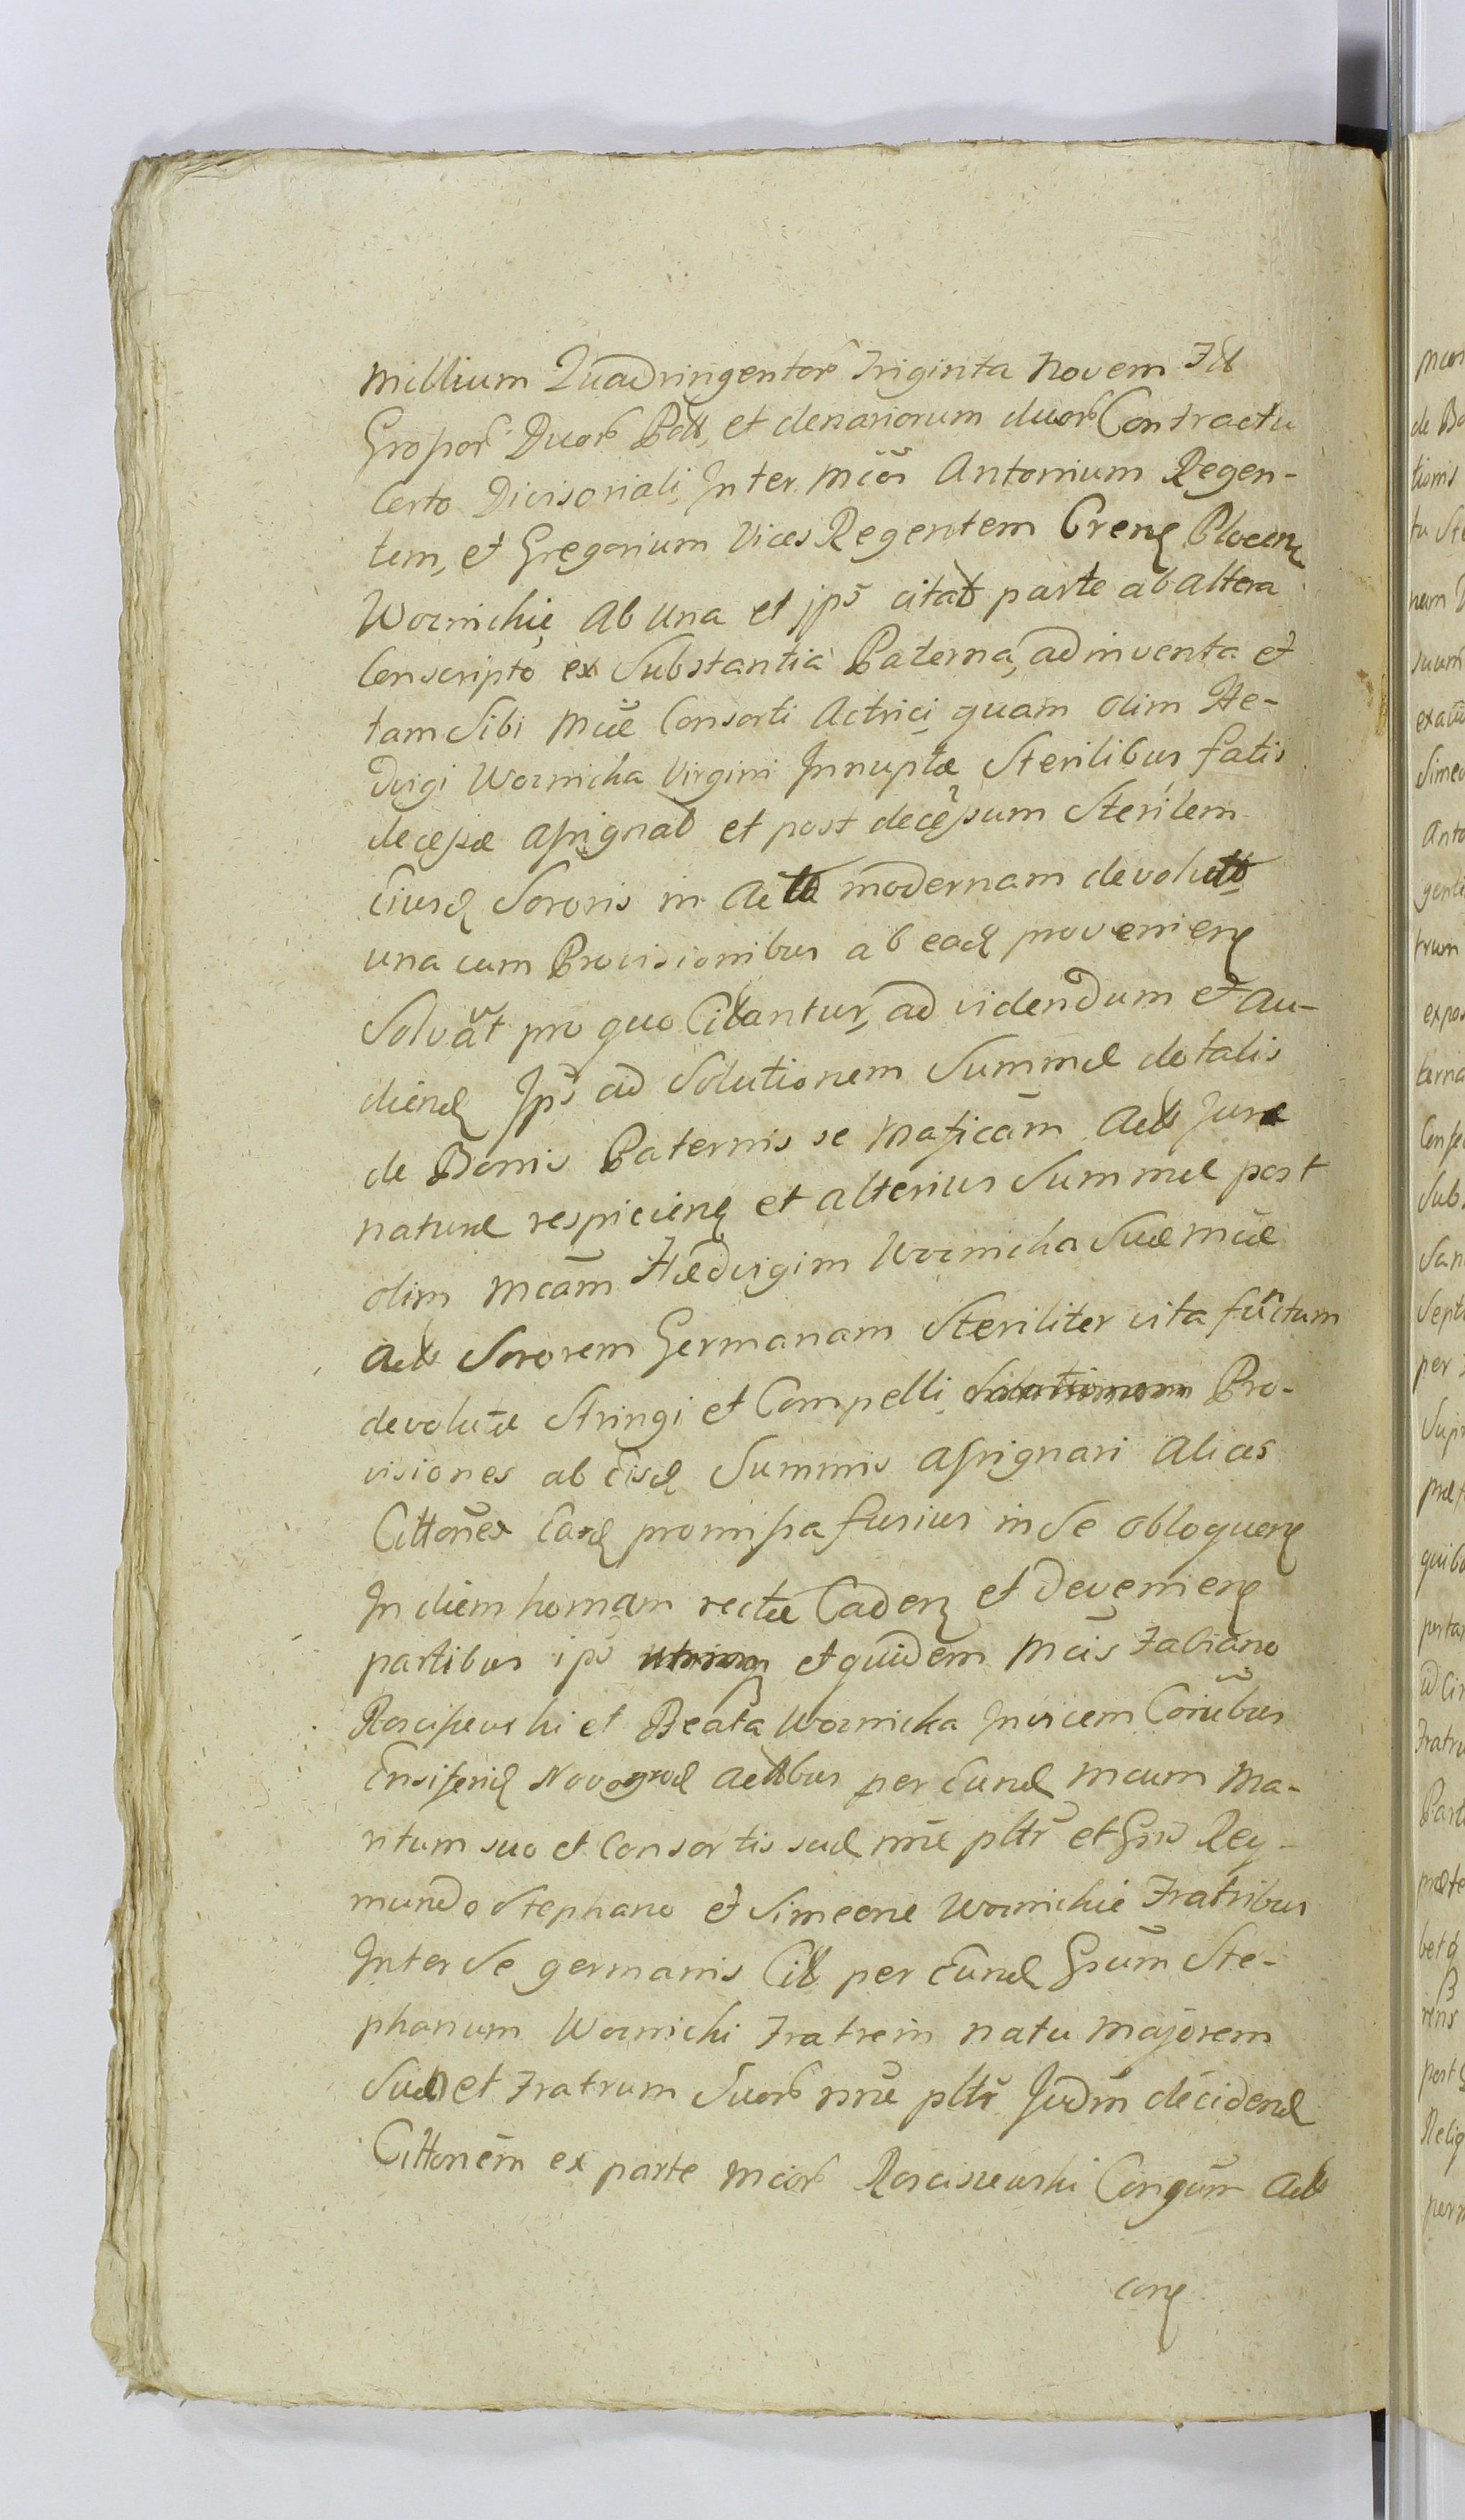 millium Quadringentor̃ Triginta Novem Fll
Grossor̃ Duor̃ Poll, et denariorum duor̃ Contractu
Certo Divisoriali Inter Mcõs Antonium Regen-
tem, et Gregorium Vices Regentem Crenẽ Plocenẽ
Woznickie Ab Una et jps̃ citat parte ab altera
Conscripto ex Substantia Paterna, adinventa et
tam Sibi Mcæ Consorti Actrici quam olim He-
dvigi Woznicka Virgini Innuptæ Sterilibus fatis
decessæ assignat et post decessum Sterilem
Eiusd Sororis in modernam devolutt
una cum Provisionibus ab ead provenienẽ
Solvãt pro quo Citantur, ad videndum et au-
diend Ips̃ ad Solutionem Summæ dotalis
de Bonis Paternis se Mascam Acts Jure
naturæ respicienẽ et alterius Summæ post
olim Mcam Hædvigim Woznicka Suæ Mcæ
Acts Sororem Germanam Steriliter vita functum
devolutæ Stringi et Compelli Pro-
visiones ab eisd Summis assignari alias
Cittones Eard promissa fusius in Se obloquenẽ
In diem hornam recte Cadenẽ et Devenienẽ
partibus ips̃ et quidem Mcis Fabiano
Rosciszewski et Beata Woznicka Invicem Coniũbus
Ensiferid Novogrod Acttbus per Eund Mcum Ma-
ritum suo et Consortis suæ nrẽ pltr̃ et Gsis Rey-
mundo Stephano et Simeone Woznickie Fratribus
Inter Se germanis Citt per Eund Gsum Ste-
phanum Woznicki Fratrem natu majorem
Suo et Fratrum Suor̃ nrẽ pltr̃ Judm̃ decidend
Cittonem ex parte Mcor̃ Rosciszewski Conjgum Acts
conẽ